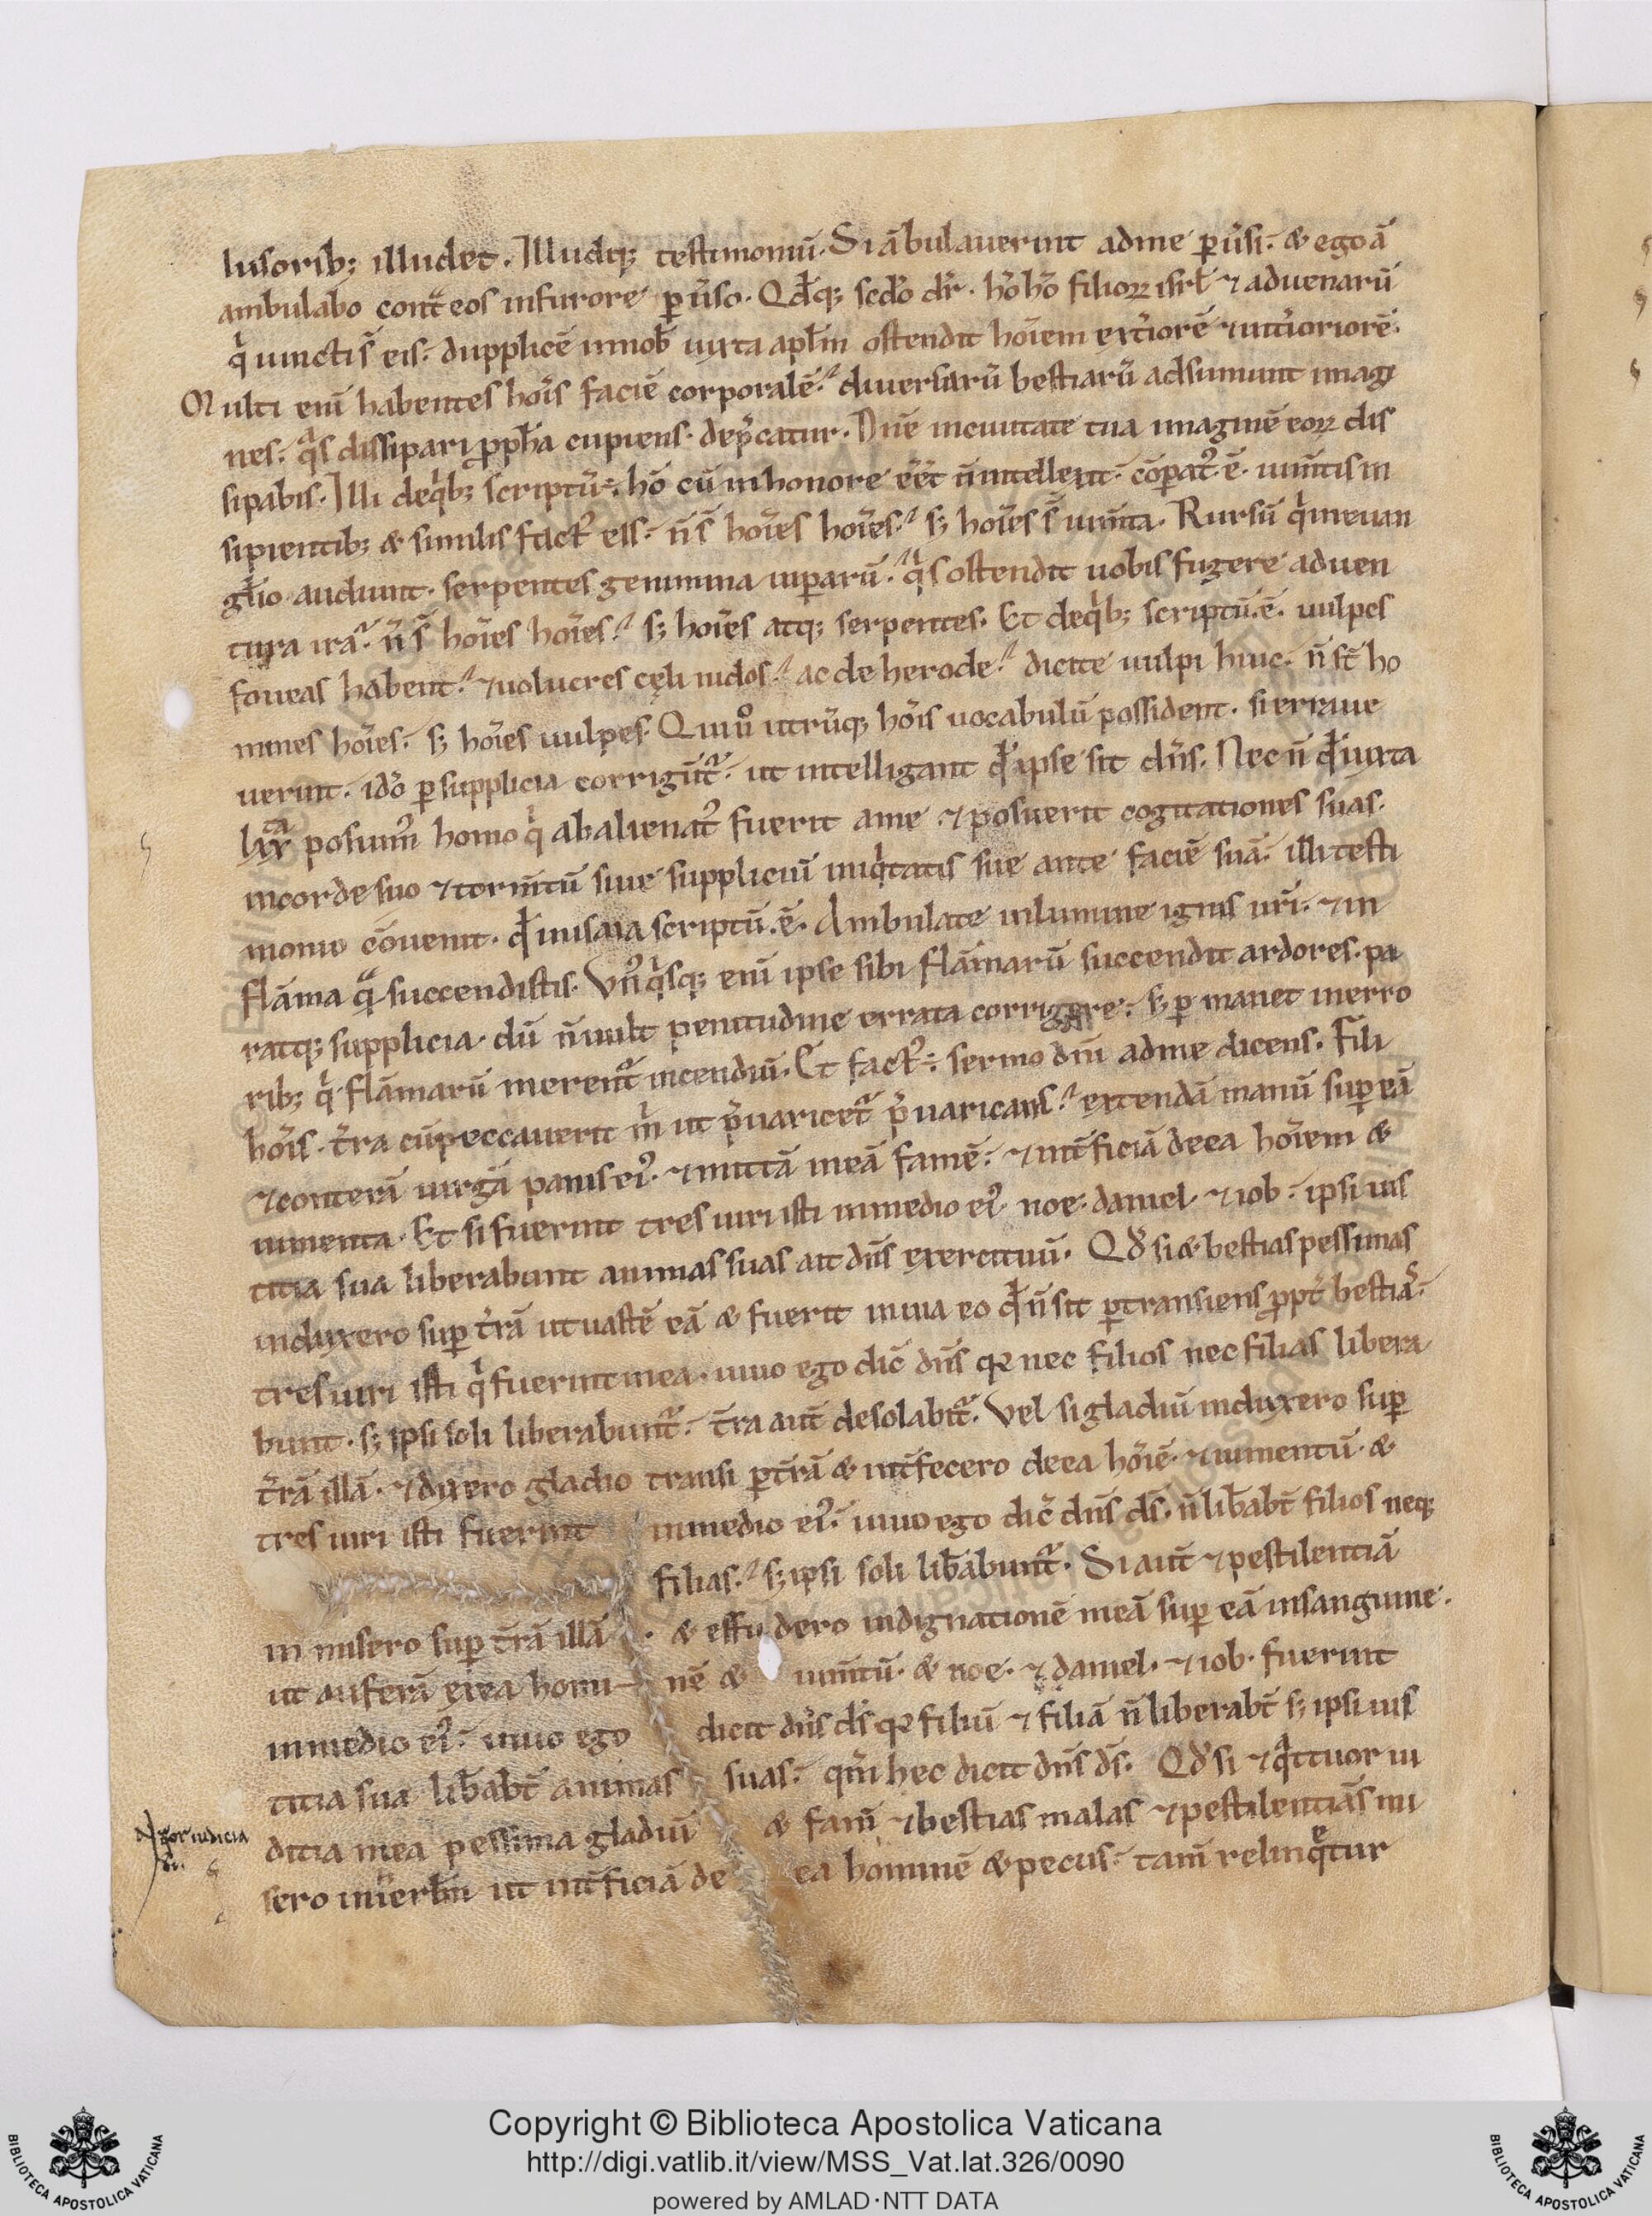 lusorib; illudet. Illudq; testimoniũ. Si ãbulauerint adme puersi. & ego ã
ambulabo cont̃ eos infurore puerso. Qđq; scđo dr̃. hõ hõ filioꝝ isrł ⁊ aduenarũ
q̓ uincti s̃ eis. dupplicẽ innob̃ iuxta apłm ostendit hoĩem ext̓iorẽ ⁊ int̓ioriorẽ.
Multi enĩ habentes hoĩs faciẽ corporalẽ. diuersarũ bestiarũ adsumunt imagi
nes. qͣs dissipari ꝓpħa cupiens. dep̃catur. Dñe inciuitate tua imaginẽ eoꝝ dis
sipabis. Illi deq̓b; scriptũ ÷. hõ cũ inhonore eẽt ñ intellexit. cõparat᾽ ẽ. ium̃tis in
sipientib; & similis fact᾽ ess. ñ s̃ hoĩes hoĩes. s; hoĩes s̃ ium̃ta. Rursũ q̓ ineuan
gł̃io audiunt. serpentes genimina uiparũ. q̓s ostendit uobis fugere aduen
tura irã. ñ s̃ hoĩes hoĩes. s; hoĩes atq; serpentes. Et deq̓b; scriptũ.ẽ. uulpes
foueas habent. ⁊uolucres cęli nidos. ac de herode. dicite uulpi huic. ñ st̃ ho
mines hoĩes. s; hoĩes uulpes. Quiů utrũq; hoĩs uocabulũ possident. si erraue
uerint. idõ p supplicia corrigũt᾽. ut intelligant qđ ipse sit dñs. Nec ñ qđ iuxta
lxx ta posuim᾽ homo q̓ abalienat᾽ fuerit ame ⁊ posuerit cogitationes suas.
incorde suo ⁊ torm̃tũ siue suppliciũ iniq̓tatis sue ante faciẽ suã. illi testi
monio cõuenit. qđ inisaia scriptũ.ẽ. Ambulate inlumine ignis ur̃i. ⁊ in
flãma qͣ succendistis. Vn᾽q̓sq; enĩ ipse sibi flãmarũ succendit ardores. pa
ratq; supplicia. dũ ñ uult penitudine errata corrigere. s; p manet inerro
rib; q̓ flãmarũ merent᾽ incendiũ. Et fact᾽ ÷ sermo dñi adme dicens. Fili
hoĩs. t̃ra cũ peccauerit m̓ ut p̃uaricet᾽ p̃uaricans. extendã manũ sup eã
⁊conterã uirgã panis ei᾽. ⁊ mittã ineã famẽ. ⁊ int̃ficiã deea hoĩem &
iumenta. Et si fuerint tres uiri isti inmedio ei᾽ noe. daniel ⁊ iob. ipsi ius
titia sua liberabunt animas suas ait dñs exercituũ. Qđ si & bestias pessimas
induxero sup t̃rã ut uastẽ eã & fuerit inuia eo qđ ñ sit ptransiens ꝓpt̓ bestias.
tres uiri isti q̓ fuerint inea. uiuo ego dic̃ dñs qꝛ nec filios nec filias libera
bunt. s; ipsi soli liberabunt᾽. t̃ra aut̃ desolabit᾽. Vel si gladiũ induxero sup
t̃rã illã. ⁊ dixero gladio transi p t̃rã & int̃fecero deea hoĩẽ. ⁊ iumentũ. &
tres uiri isti fuerint inmedio ei᾽. uiuo ego dic̃ dñs ds̃. ñ lib̃abt̃ filios neq;
filias. s; ipsi soli lib̃abunt᾽. Si aut̃ ⁊ pestilentiã
in misero sup t̃rã illã. & effudero indignationẽ meã sup eã insanguine.
ut auferã exea homi-nẽ & ium̃tũ. & noe. ⁊ daniel. ⁊ iob. fuerint
inmedio ei᾽. uiuo ego dicit dñs ds̃ qꝛ filiũ ⁊ filiã ñ liberabt̃ s; ipsi ius
titia sua lib̃abt̃ animas suas. qm̃ hec dicit dñs ds̃. Qđ si ⁊ qͣttuor iu
ditia mea pessima gladiũ & fam̃ ⁊ bestias malas ⁊ pestilentiãs mi
sero inierłm ut int̃ficiã de ea hominẽ & pecus. tam̃ relinq̃tur
iudicia
Copyright © Biblioteca Apostolica Vaticana
http://digi.vatlib.it/view/MSS_Vat.lat.326/0090
powered by AMLAD·NTT DATA
BIBLIOTECA APOSTOLICA VATICANA
BIBLIOTECA APOSTOLICA VATICANA